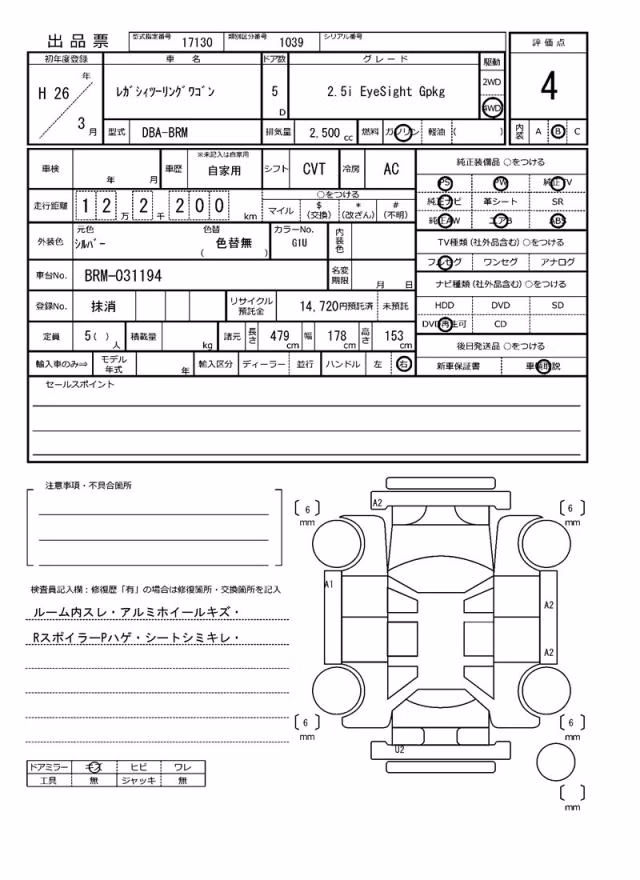 出品票 型式指定番号 17130 類別区分番号 1039 シリアル番号
初年度登録 車 名 ドア数 グレード 駆動 評価点
H 26 年 3 月 ﾚｶﾞｼｨﾂｰﾘﾝｸﾞﾜｺﾞﾝ 5 D 2.5i EyeSight Gpkg 2WD 4WD 4
型式 DBA-BRM 排気量 2,500 cc 燃料 ガソリン 軽油 ( ) 内装 A B C
車検 年 月 車歴 ※未記入は自家用 自家用 シフト CVT 冷房 AC
走行距離 1 2 万 2 千 2 0 0 km ○をつける
マイル $(交換) *(改ざん) #(不明)
外装色 元色 ｼﾙﾊﾞｰ 色替 ( 色替無 ) カラーNo. G1U 内装色
車台No. BRM-031194 名変期限 月 日
登録No. 抹消 リサイクル預託金 14,720円預託済 未預託
定員 5( ) 人 積載量 kg 諸元 長さ 479 cm 幅 178 cm 高さ 153 cm
輸入車のみ⇒ モデル年式 年 輸入区分 ディーラー 並行 ハンドル 左 右
純正装備品 ○をつける
PS PW 純正TV
純正ナビ 革シート SR
純正AW エアB ABS
TV種類 (社外品含む) ○をつける
フルセグ ワンセグ アナログ
ナビ種類 (社外品含む) ○をつける
HDD DVD SD
DVD再生可 CD
後日発送品 ○をつける
新車保証書 車輌取説
セールスポイント
注意事項・不具合箇所
検査員記入欄：修復歴「有」の場合は修復箇所・交換箇所を記入
ルーム内スレ・アルミホイールキズ・
RスポイラーPハゲ・シートシミキレ・
ドアミラー キズ ヒビ ワレ
工具 無 ジャッキ 無
A2
( 6 ) mm
( 6 ) mm
A1
A2
A2
( 6 ) mm
( 6 ) mm
U2
( ) mm